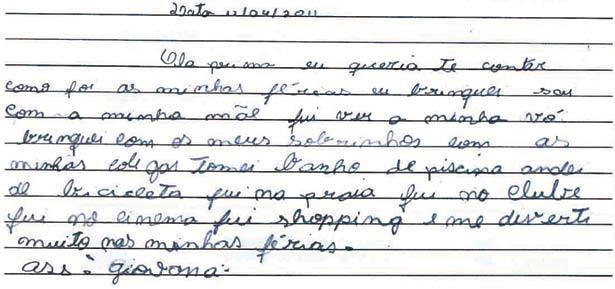 Data 12/04/2011
Ola prima eu queria te contar
como foi as minhas férias eu brinquei sou
com a minha mãe fui ver a minha vó
brinquei com os meus sobrinhos com as
minhas colegas tomei banho de piscina andei
de bicicleta fui na praia fui no clube
fui no cinema fui shopping e me diverti
muito nas minhas férias.
ass: giovana.